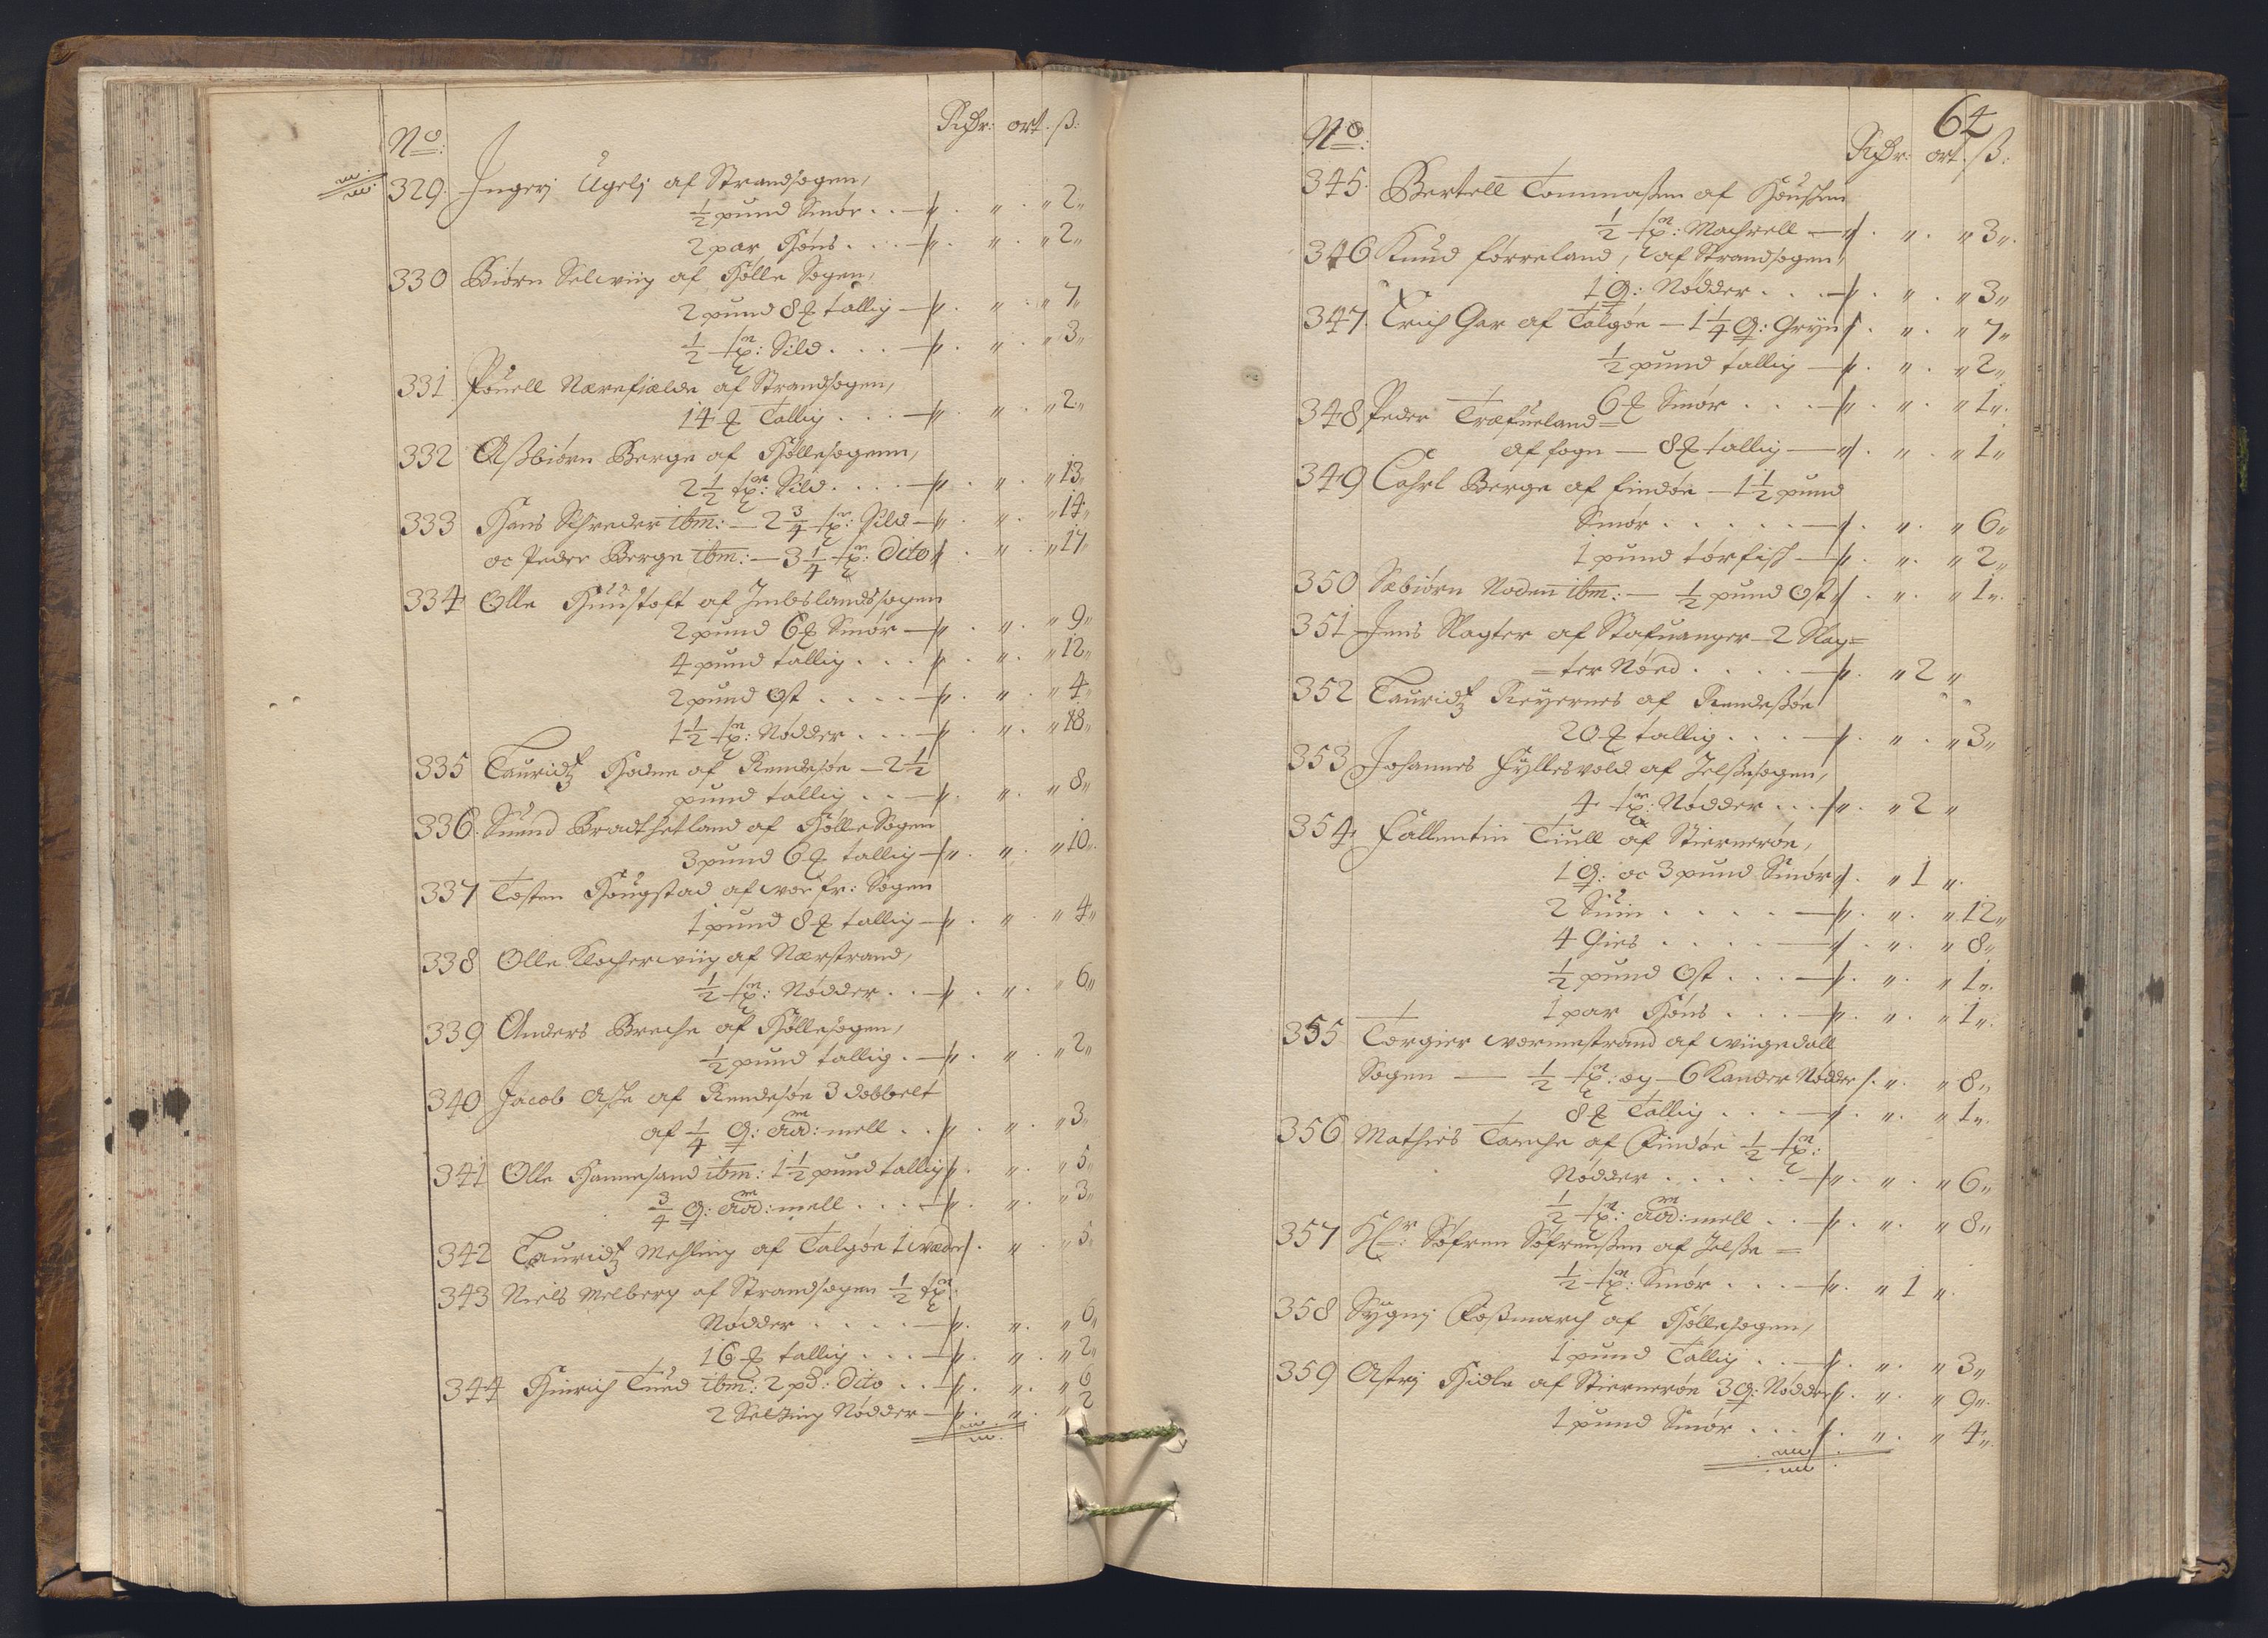 No:
Rdr: ort. ß:
329. Ingerj Ugelj af Strandsogen,
½ pund Smør . . — „ . „ . „ 2„
2 par Høns . . . — „ . „ . „ 2„
330 Biørn Selwiig af Hølle Sogen,
2 pund 8 ℔ tallig — „ . „ . „ 7„
½ tn: Sild . . . — „ . „ . „ 3„
331 Pouell Nærefjælde af Strandsogen,
14 ℔ Tallig . . . — „ . „ . „ 2„
332 Aßbiørn Berge af Høllesogenn,
2½ tn: Sild . . . . — „ . „ . „ 13„
333 Hans Schreder ibm: — 2¾ tn: Sild — „ . „ . „ 14„
oc Peder Berge ibm: — 3¼ tn: dito „ . „ . „ 17„
334 Olle Huustoft af Imbslandssogen
2 pund 6 ℔ Smør — „ . „ . „ 9„
4 pund tallig . . . „ . „ . „ 12„
2 pund Ost . . . . — „ . „ . „ 4„
1½ tn: Nødder . . . — „ . „ . „ 18„
335 Lauridtz Hodne af Rendesøe — 2½
pund tallig . . — „ . „ . „ 8„
336. Suend Bradthetland af Hølle Sogen
3 pund 6 ℔ tallig — „ . „ . „ 10„
337 Tosten Hougstad af wor fr: Sogen
1 pund 8 ℔ tallig — „ . „ . „ 4„
338 Olle Klocherwiig af Nærstrand,
½ tn: Nødder . . — „ . „ . „ 6„
339 Anders Breche af Høllesogen,
½ pund tallig . — „ . „ . „ 2„
340 Jacob Aske af Rendesøe 3 dobbelt
af ¼ Q: mell . . „ . „ . „ 3„
341 Olle Hannesand ibm: 1½ pund tallig „ . „ . „ 5„
¾ Q: mell . . . — „ . „ . „ 3„
342 Lauridtz Mehling af Talgøe 1 wæder „ . „ . „ 5„
343 Niels Melberg af Strandsogen ½ tn:
Nødder . . . . — „ . „ . „ 6„
16 ℔ tallig . . . — „ . „ . „ 2„
344 Hinrich Tued ibm: 2 pd: dito . . — „ . „ . „ 6
2 Selding Nødder — „ . „ . „ 2
64
No:
Rdr: ort. ß:
345. Bertell Tommaßen af Houssen
½ tn: Machrell — „ . „ . „ 3„
346 Knud førreland, af Strandsogen,
1 Q: Nødder . . . — „ . „ . „ 3„
347. Erich Gar af Talgøe — 1¼ Q: Gryn „ . „ . „ 7„
½ pund tallig — „ . „ . „ 2„
6 ℔ Smør . . . — „ . „ . „ 1„
348 Peder Træfueland =
af fogn — 8 ℔ tallig — „ . „ . „ 1„
349 Carl Berge af findøe — 1½ pund
Smør . . . . . — „ . „ . „ 6„
1 pund tørfisk — „ . „ . „ 2„
350 Sæbiørn Noden ibm: — ½ pund Ost „ . „ . „ 1„
351 Jens Slagter af Stafuanger — 2 Slag=
=ter Nøed . . . . — „ . „ 2 „
352 Lauridtz Reyernes af Rendeßøe
20 ℔ tallig . . . — „ . „ . „ 3„
353 Johannes Hyllesvold af Jelßesogen,
4 tn: Nødder . . . „ . „ 2 „
354. Fallentin Tiull af Stiernerøe,
1 Q: oc 3 pund Smør „ . „ 1 „.
2 Suin . . . . . — „ . „ . „ 12„
4 Gies . . . . — „ . „ . „ 8„
½ pund Ost . . . — „ . „ . „ 1„
1 par Høns . . . — „ . „ . „ 1„
355 Torgier wormestrand af wiigedall
Sogen — ½ tn: og — 6 Kander Nødder „ . „ 8„
8 ℔ Tallig . . . — „ . „ . „ 1„
356 Mathies Torche af Findøe ½ tn:
Nødder . . . . . — „ . „ . „ 6„
½ tn: mell . . — „ . „ . „ 8„
357 Hr: Søfren Søfrensßen af Jelße =
½ tn: Smør . . . — „ . „ 1 „.
358 Sygnj Foßmarch af Høllesogen,
1 pund Tallig . . — „ . „ . „ 3„
359 Astrj Hidle af Stiernerøe 3 Q: Nødder „ . „ . „ 9„
1 pund Smør . . . „ . „ . „ 4„